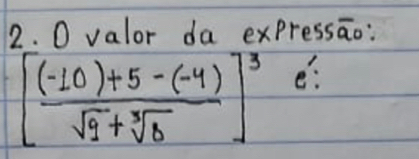 2. O valor da expressão:
[((-10)+5-(-4))/(√9+∛8)]³ é: